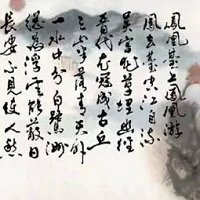 鳳凰臺上鳳凰游
鳳去臺空江自流
吳宮花草埋幽徑
晉代衣冠成古丘
三山半落青天外
一水中分白鷺洲
總為浮雲能蔽日
長安不見使人愁